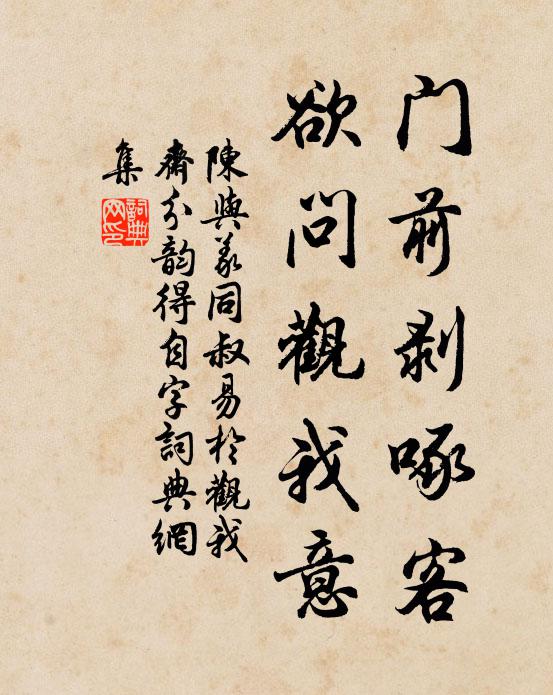 门前剥啄客
欲问觀我意
陳與義同叔易於觀我
齋分韵得自字詞典網
集
詞典
网印